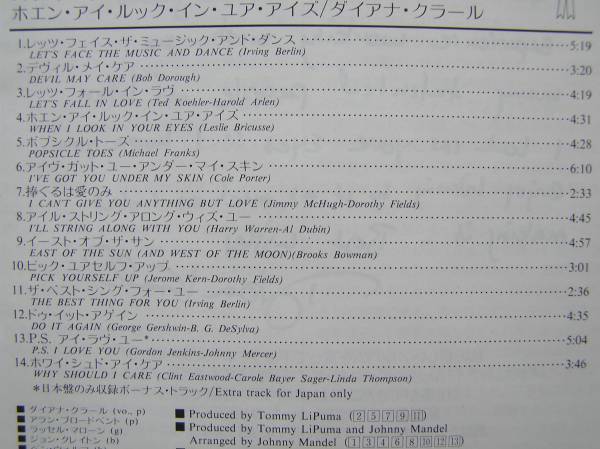 ホエン・アイ・ルック・イン・ユア・アイズ/ダイアナ・クラール
1.レッツ・フェイス・ザ・ミュージック・アンド・ダンス 5:19
LET'S FACE THE MUSIC AND DANCE (Irving Berlin)
2.デヴィル・メイ・ケア 3:20
DEVIL MAY CARE (Bob Dorough)
3.レッツ・フォール・イン・ラヴ 4:19
LET'S FALL IN LOVE (Ted Koehler-Harold Arlen)
4.ホエン・アイ・ルック・イン・ユア・アイズ 4:31
WHEN I LOOK IN YOUR EYES (Leslie Bricusse)
5.ポプシクル・トーズ 4:28
POPSICLE TOES (Michael Franks)
6.アイヴ・ガット・ユー・アンダー・マイ・スキン 6:10
I'VE GOT YOU UNDER MY SKIN (Cole Porter)
7.捧ぐるは愛のみ 2:33
I CAN'T GIVE YOU ANYTHING BUT LOVE (Jimmy McHugh-Dorothy Fields)
8.アイル・ストリング・アロング・ウィズ・ユー 4:45
I'LL STRING ALONG WITH YOU (Harry Warren-Al Dubin)
9.イースト・オブ・ザ・サン 4:57
EAST OF THE SUN (AND WEST OF THE MOON)(Brooks Bowman)
10.ピック・ユアセルフ・アップ 3:01
PICK YOURSELF UP (Jerome Kern-Dorothy Fields)
11.ザ・ベスト・シング・フォー・ユー 2:36
THE BEST THING FOR YOU (Irving Berlin)
12.ドゥ・イット・アゲイン 4:35
DO IT AGAIN (George Gershwin-B. G. DeSylva)
13.P.S. アイ・ラヴ・ユー* 5:04
P.S. I LOVE YOU (Gordon Jenkins-Johnny Mercer)
14.ホワイ・シュド・アイ・ケア 3:46
WHY SHOULD I CARE (Clint Eastwood-Carole Bayer Sager-Linda Thompson)
*日本盤のみ収録ボーナス・トラック/Extra track for Japan only
■ ダイアナ・クラール (vo., p)
■ アラン・ブロードベント (p)
■ ラッセル・マローン (g)
■ ジョン・クレイトン (b)
■ Produced by Tommy LiPuma (2 5 7 9 11)
■ Produced by Tommy LiPuma and Johnny Mandel
Arranged by Johnny Mandel (1 3 4 6 8 10 12 13)